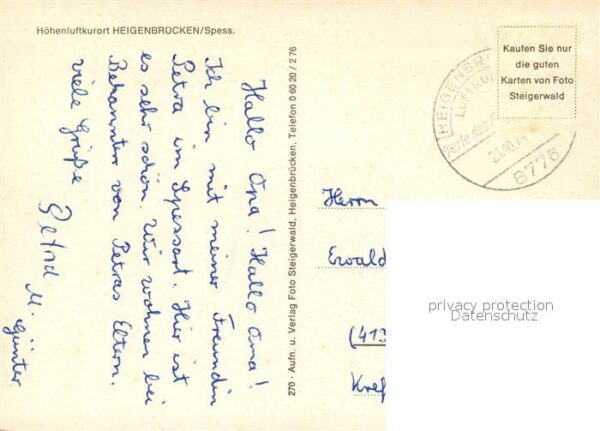 Höhenluftkurort HEIGENBRÜCKEN/Spess.
Hallo Opa! Hallo Oma!
Ich bin mit meiner Freundin
Petra im Spessart. Hier ist
es sehr schön. Wir wohnen bei
Bekannter von Petras Eltern.
viele Grüße
M.
Günter
270 · Aufn. u. Verlag Foto Steigerwald, Heigenbrücken, Telefon 0 60 20 / 2 76
Kaufen Sie nur
die guten
Karten von Foto
Steigerwald
HEIGENBR
LUFTKU
Perle des
21.10.75
8776
Herrn
Ewald
(413
Kref
privacy protection
Datenschutz